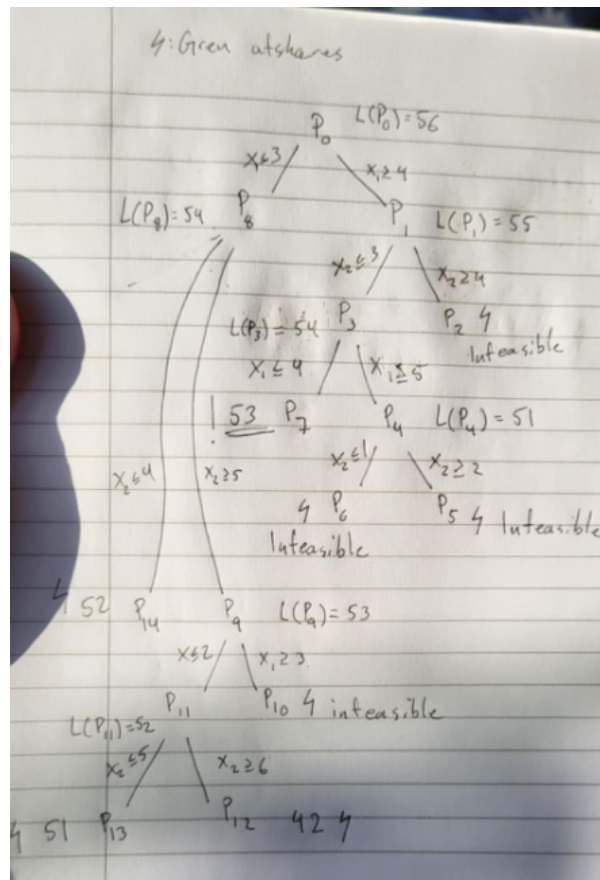 ϟ: Gren afskæres
P₀ L(P₀)=56
x₁≤3 x₁≥4
L(P₈)=54 P₈ P₁ L(P₁)=55
x₂≤3 x₂≥4
L(P₃)=54 P₃ P₂ ϟ
Infeasible
x₁≤4 x₁≥5
! 53 P₇ P₄ L(P₄)=51
x₂≤4 x₂≥5 x₂≤1 x₂≥2
ϟ P₆ P₅ ϟ Infeasible
Infeasible
ϟ 52 P₁₄ P₉ L(P₉)=53
x≤2 x₁≥3
P₁₁ P₁₀ ϟ infeasible
L(P₁₁)=52
x₂≤5 x₂≥6
ϟ 51 P₁₃ P₁₂ 42 ϟ